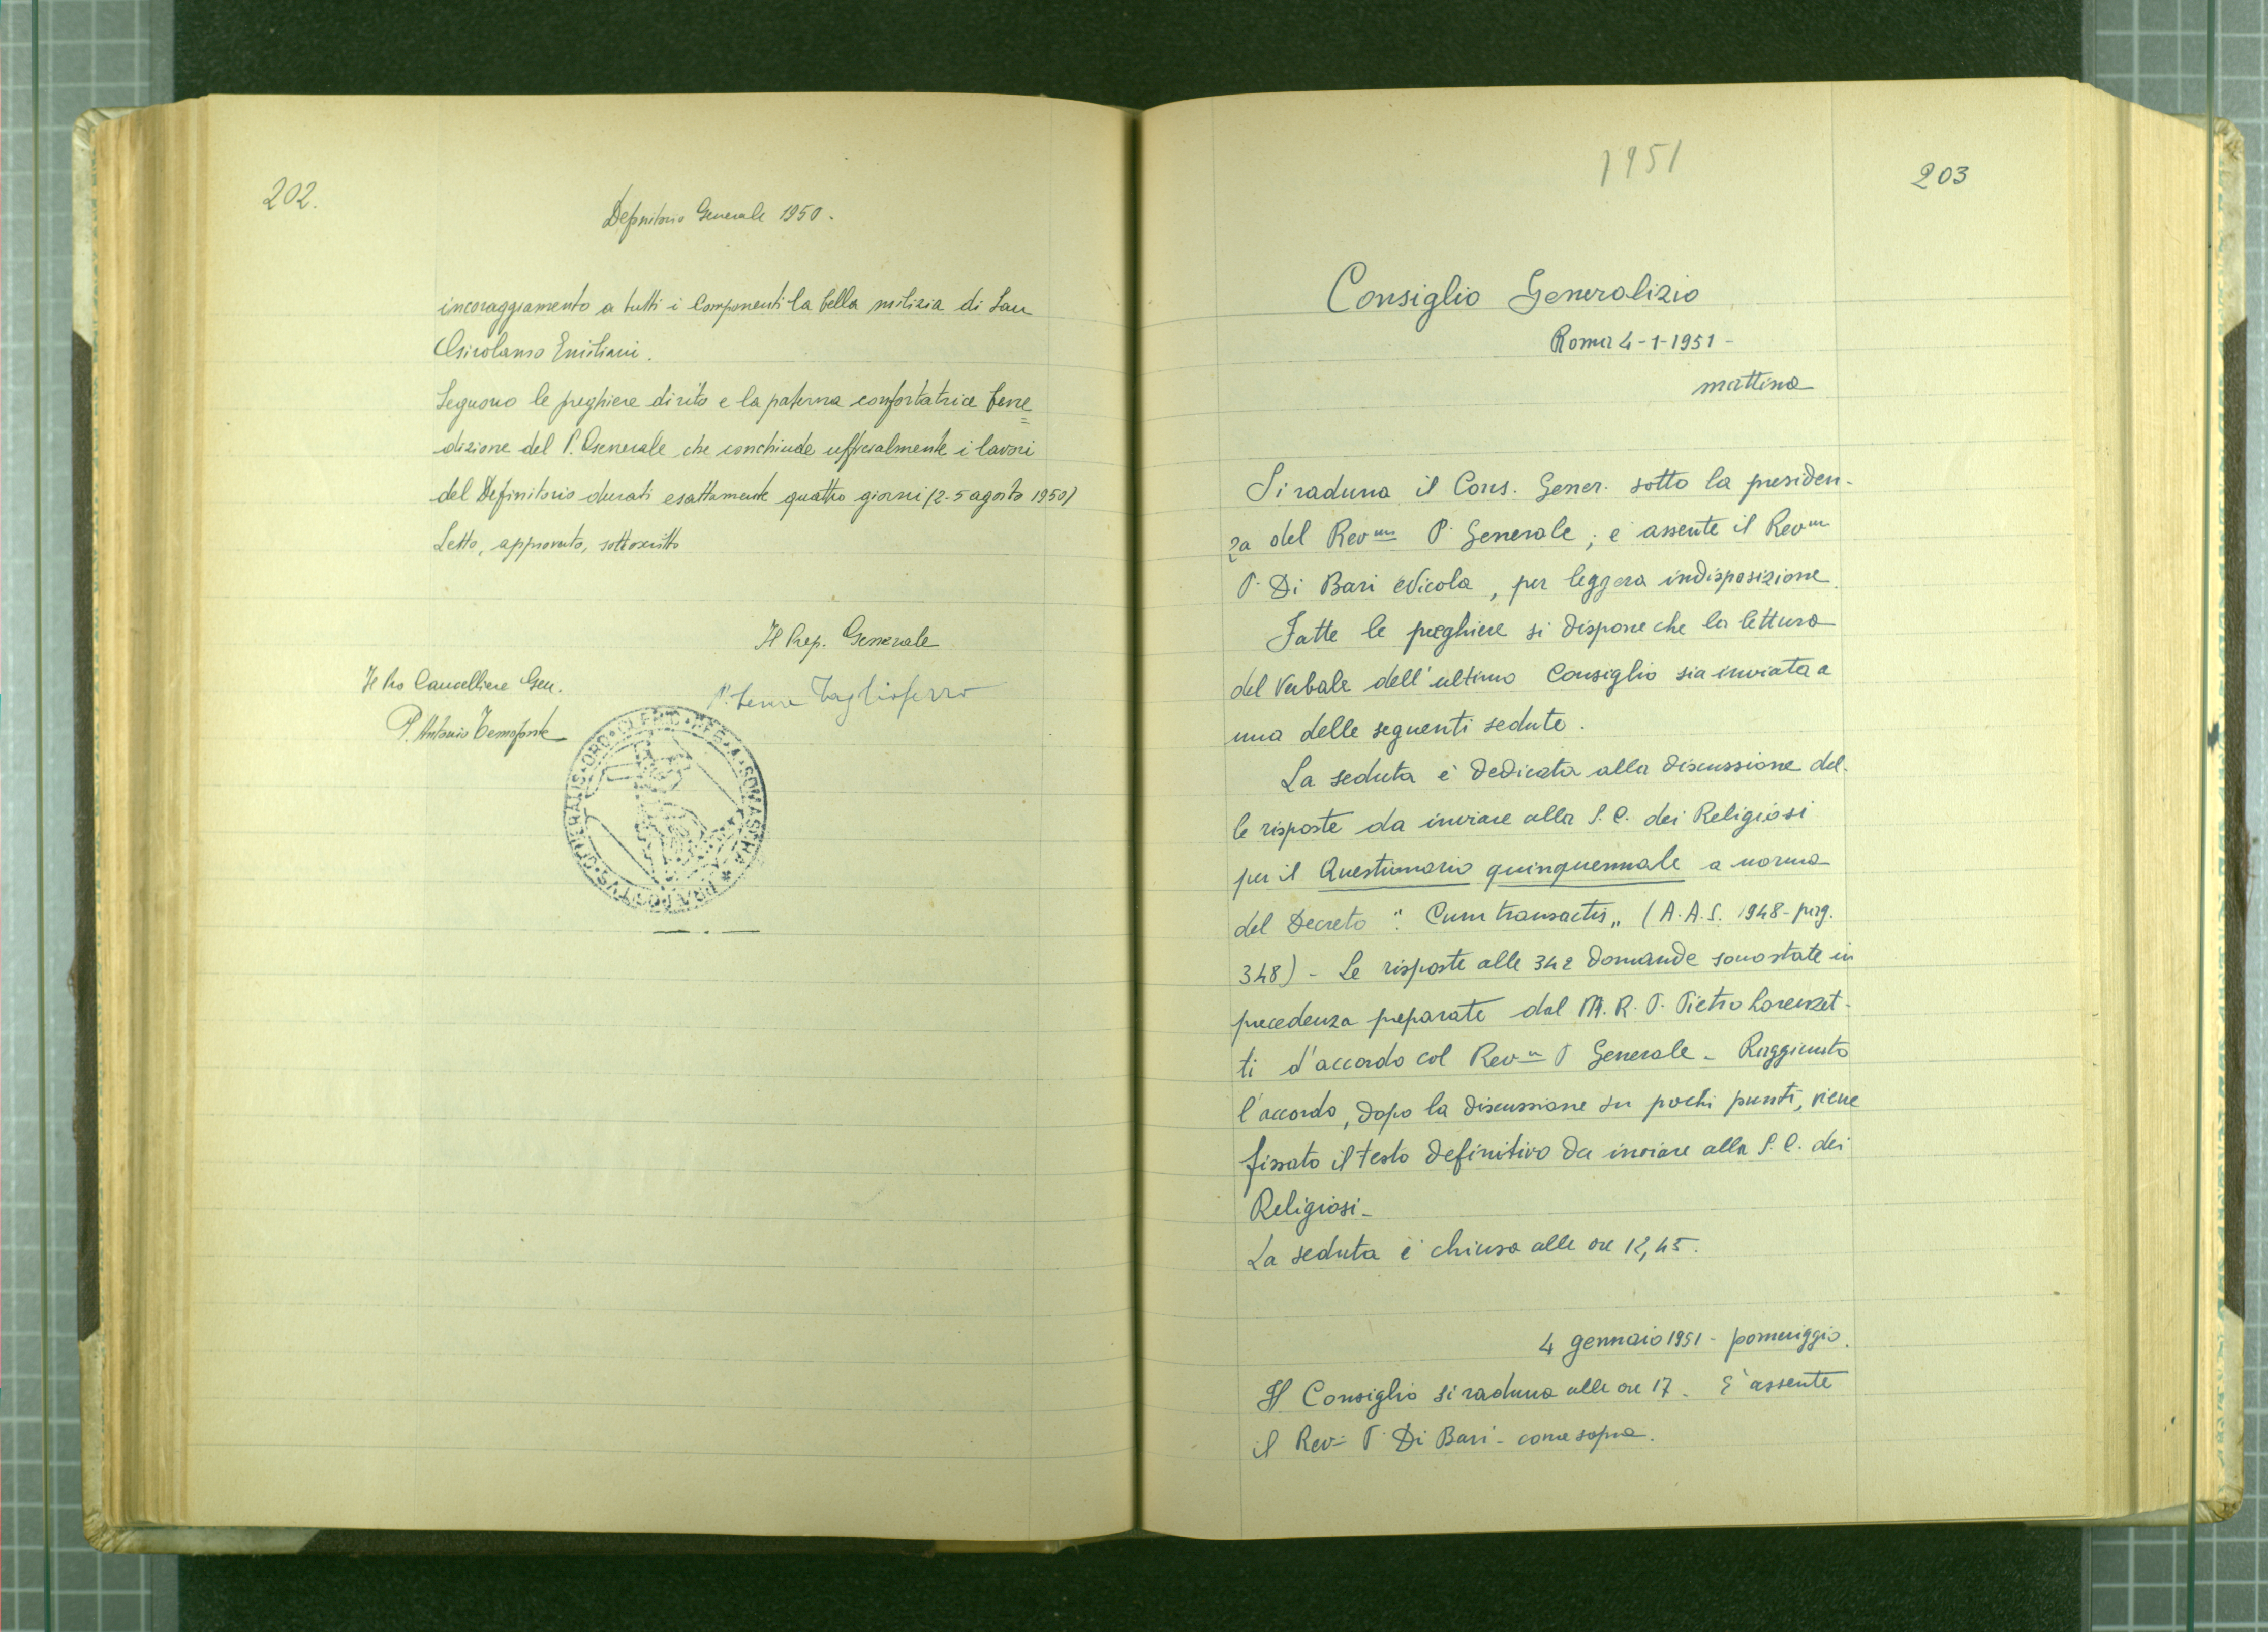 202.
Definitorio Generale 1950.
incoraggiamento a tutti i Componenti la bella milizia di San
Girolamo Emiliani.
Seguono le preghiere di rito e la paterna confortatrice bene=
dizione del P. Generale che conchiude ufficialmente i lavori
del Definitorio durati esattamente quattro giorni (2-5 agosto 1950)
Letto, approvato, sottoscritto
Il Prep. Generale
Il Pro Cancelliere Gen.
P. Tagliaferro
P. Antonio Temofonte
PRAEPOSITVS · GENERALIS · ORD · CLERIC · REG · A · SOMASCHA
1951
203
Consiglio Generalizio
Roma 4-1-1951-
mattina
Si raduna il Cons. Gener. sotto la presiden-
za del Revmo P. Generale; è assente il Revmo
P. Di Bari Nicola, per leggera indisposizione.
Fatte le preghiere si dispone che la lettura
del Verbale dell'ultimo Consiglio sia inviata a
una delle seguenti sedute.
La seduta è dedicata alla discussione del-
le risposte da inviare alla S. C. dei Religiosi
per il Questionario quinquennale a norma
del Decreto "Cum transactis" (A.A.S. 1948-pag.
348) - Le risposte alle 342 domande sono state in
precedenza preparate dal M. R. P. Pietro Lorenzet-
ti d'accordo col Revmo P Generale - Raggiunto
l'accordo, dopo la discussione su pochi punti, viene
fissato il testo definitivo da inviare alla S. C. dei
Religiosi-
La seduta è chiusa alle ore 12,45.
4 gennaio 1951 - pomeriggio.
Il Consiglio si raduna alle ore 17. È assente
il Rev. P. Di Bari - come sopra.